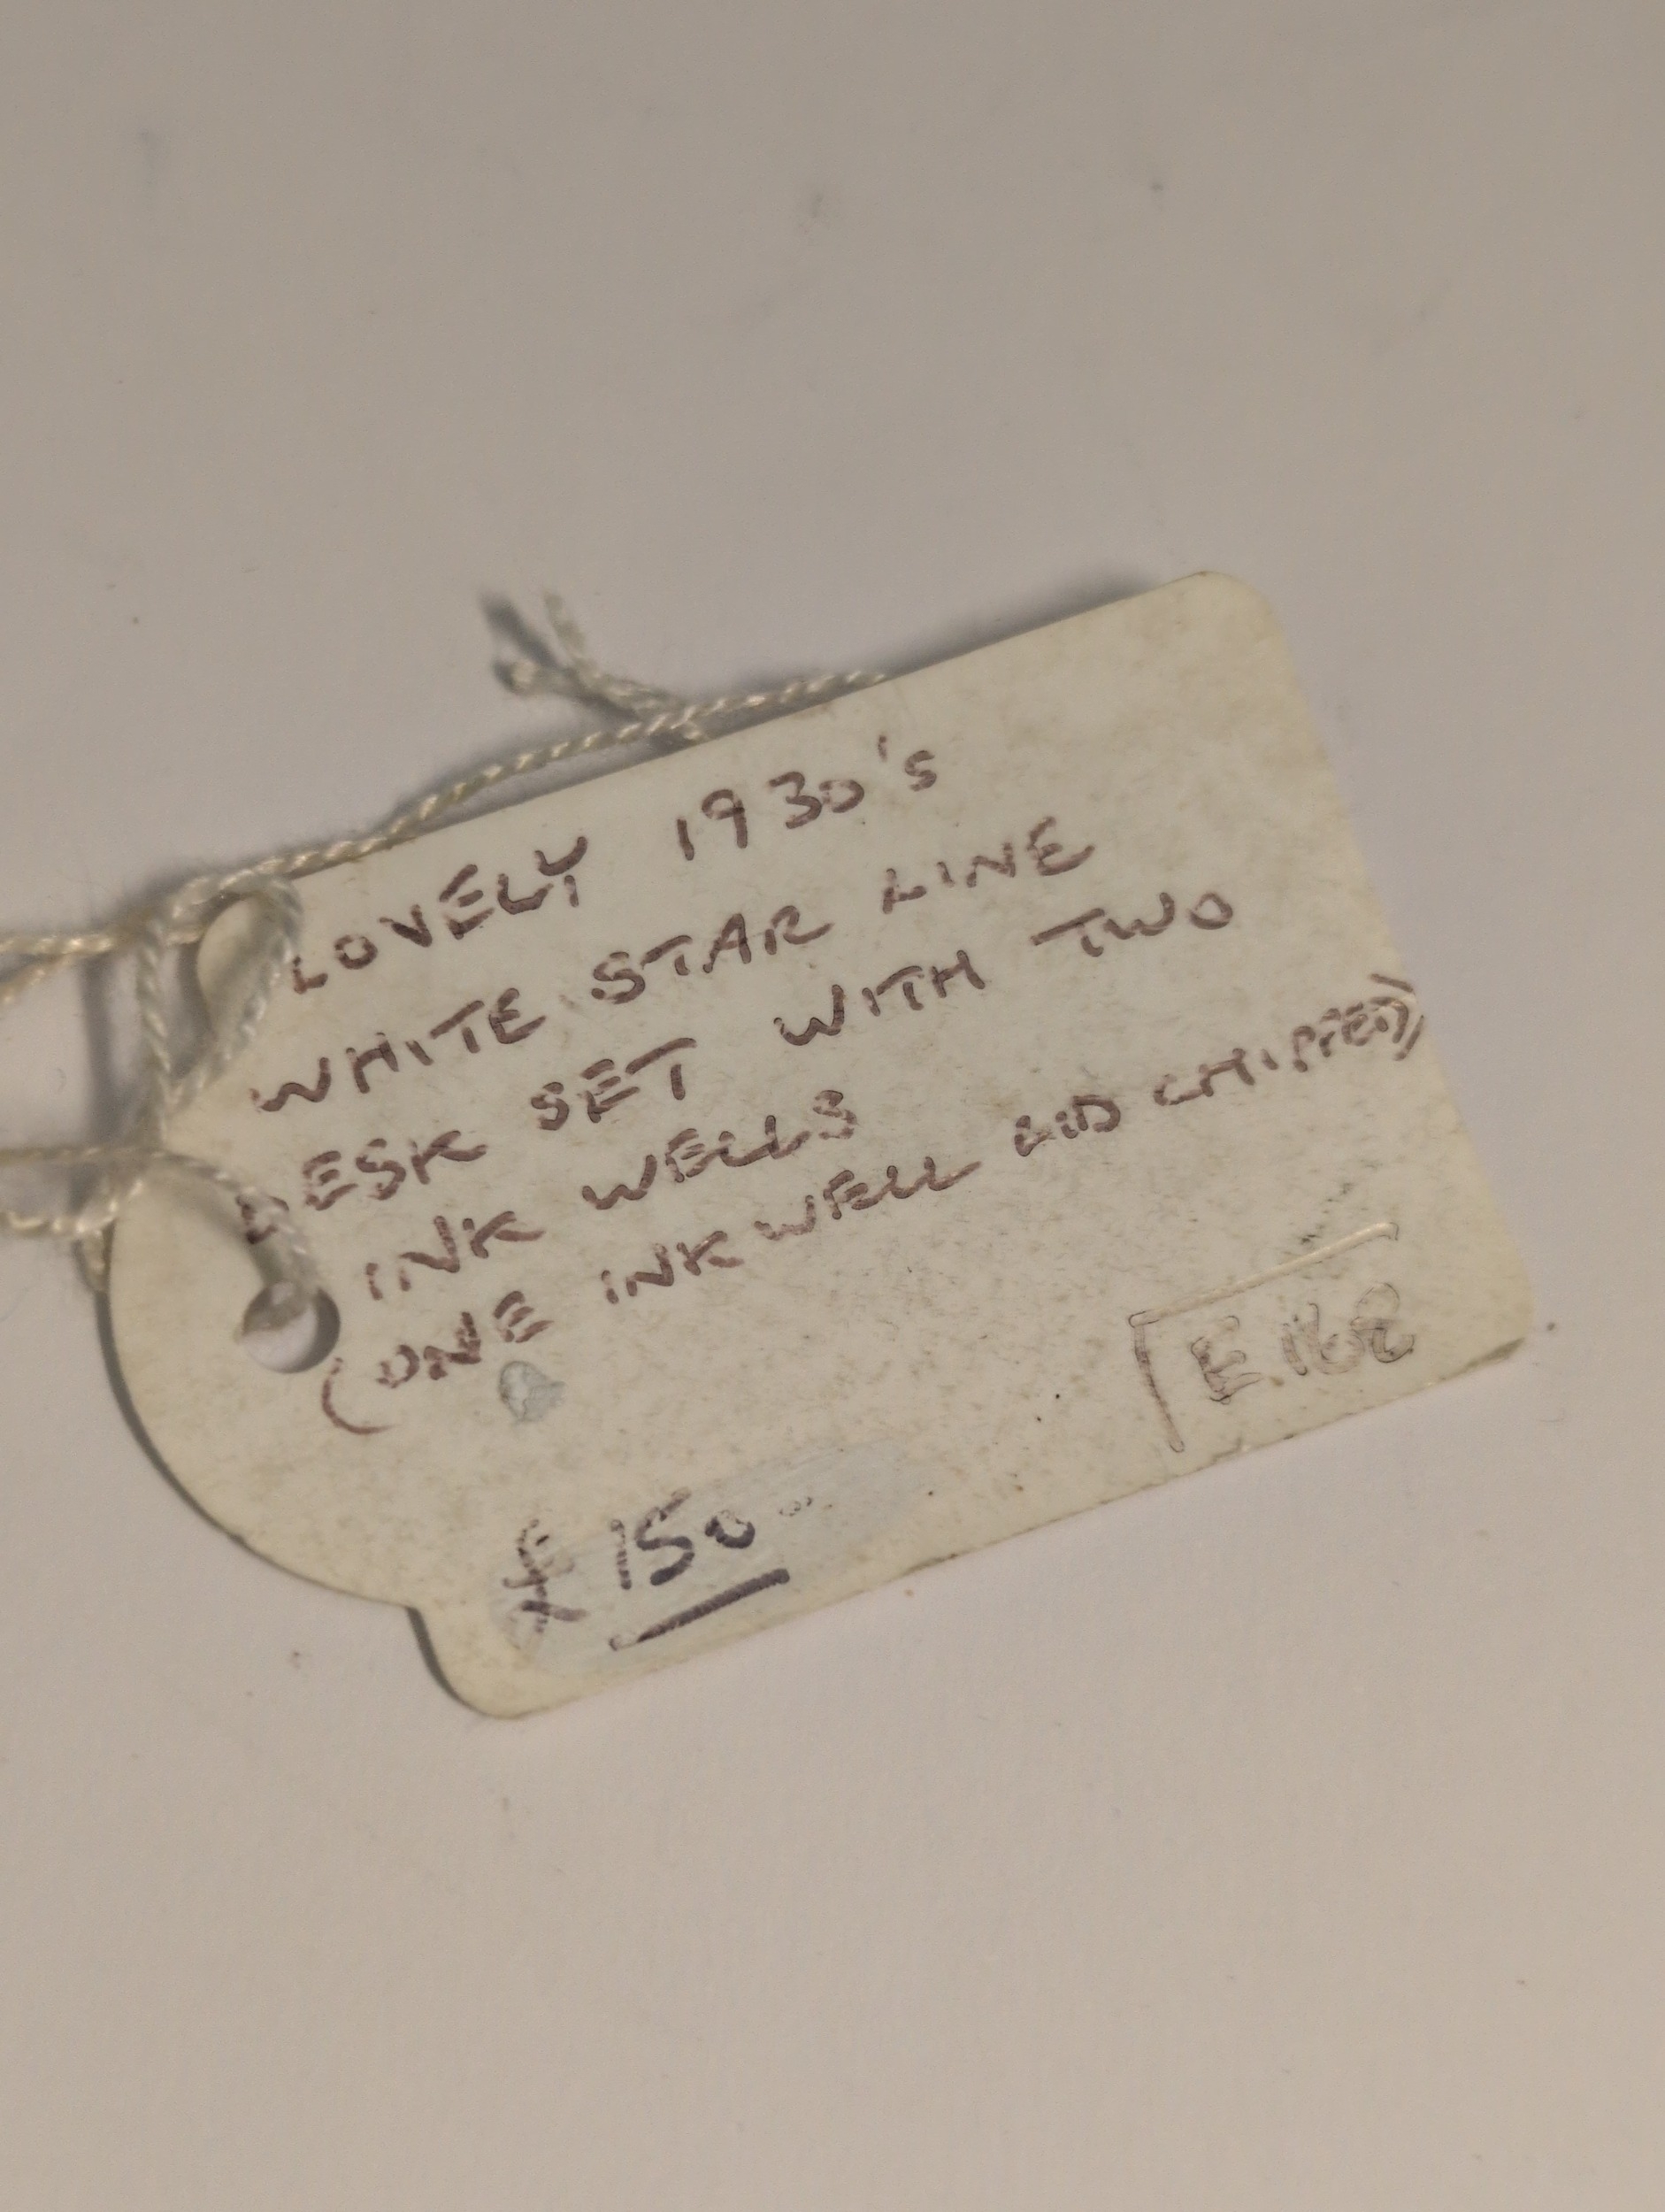 LOVELY 1930's
WHITE STAR LINE
DESK SET WITH TWO
INK WELLS
(ONE INKWELL LID CHIPPED)
E.168
£150